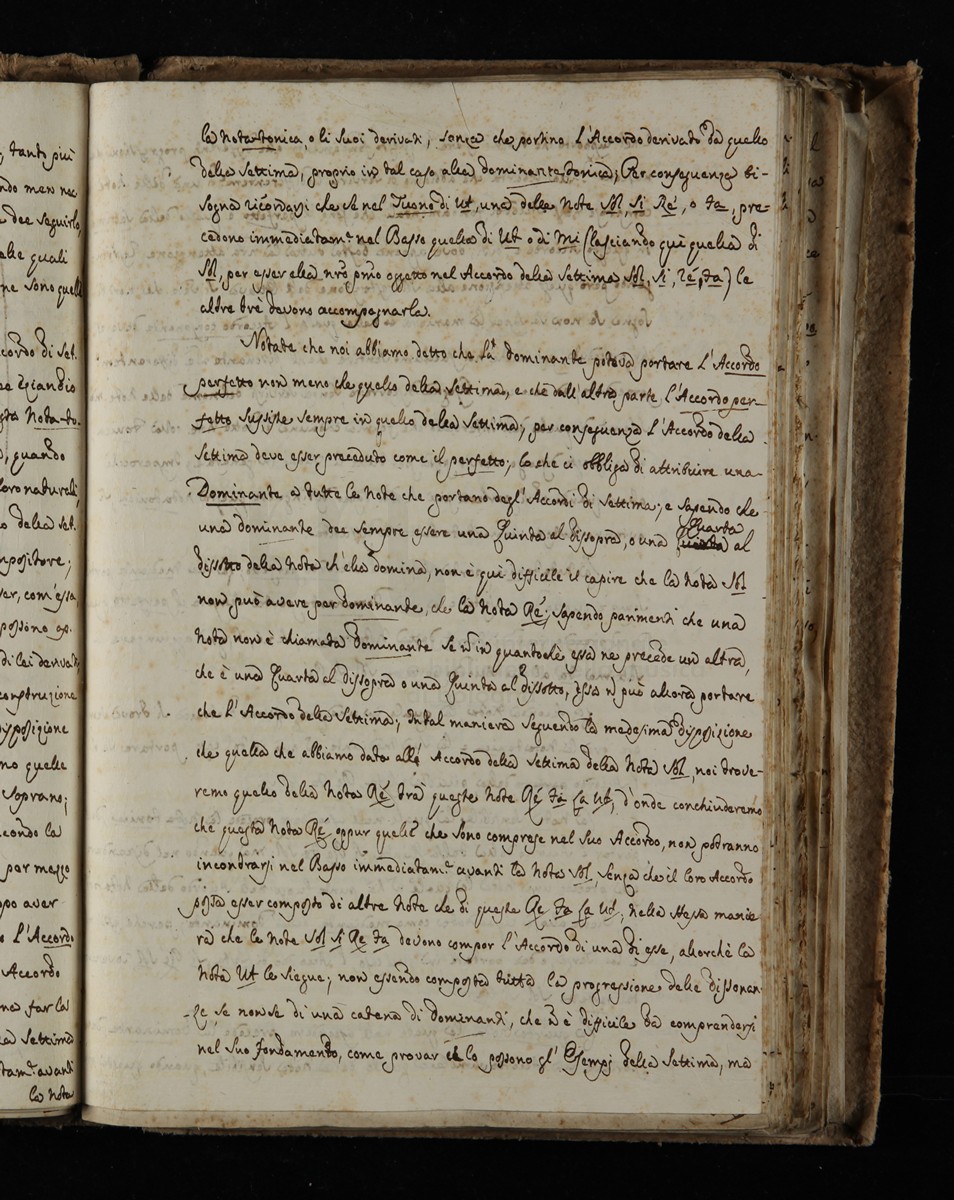 , tanto più
ndo men nec
a dee seguirlo,
alle quali
ne sono quelli
cordo di Set.
se eziandio
sta Nota-to.
, quando
loro naturali,
o della Set.
mpositore;
ser, com'essa,
possono es.
di lei derivati
construzione
disposizione
no quelle
Soprano;
condo la
per mezzo
po aver
o l'Accordo
Accordo
na far la
la Settima
tam.e avanti
la Nota
la Nota-tonica, o li suoi derivati, senza che portino l'Accordo derivato da quello
della Settima, proprio in tal caso alla dominante-tonica; Per conseguenza bi-
sogna ricordarsi che se nel Tuono di Ut, una delle Note Sol, Si Ré, o Fa, pre-
cedono immediatam.e nel Basso quella di Ut o di Mi (lasciando quì quella di
Sol, per esser ella nr̃o pm̃o oggetto nel Accordo della Settima Sol, Si, Ré, Fa) le
altre trè devono accompagnarla.
Notate che noi abbiamo detto che la dominante poteva portare l'Accordo
perfetto non meno che quello della Settima, e che dall'altra parte l'Accordo per-
fetto sussiste sempre in quello della Settima; per conseguenza l'Accordo della
Settima deve esser preceduto come il perfetto; lo che ci obbliga di attribuire una
Dominante a tutte le Note che portano degl'Accordi di Settima; e sapendo che
una dominante dee sempre essere una Quinta al dissopra, o una Quarta al
dissotto della Nota ch'ella domina, non è quì difficile il capire che la Nota Sol
non può avere per dominante, che la Nota Ré; sapendo parimenti che una
Nota non è chiamata dominante se ñ in quantochè essa ne precede un altra,
che è una Quarta al dissopra o una Quinta al dissotto, essa ñ può allora portare
che l'Accordo della Settima; In tal maniera seguendo la medesima disposizione
che quella che abbiamo dato all' Accordo della Settima della Nota Sol, noi trove-
remo quello della Nota Ré trà queste Note Ré Fa La Ut, d'onde conchiuderemo
che questa Nota Ré, oppur quelle che sono comprese nel suo Accordo, non potranno
incontrarsi nel Basso immediatam.e avanti la Nota Sol, senza che il loro Accordo
possa esser composto di altre Note che di queste Re Fa La Ut; nella stessa manie
ra che le Note Sol Si Re Fa devono compor l'Accordo di una di esse, allorchè la
Nota Ut le siegue; non essendo composta tutta la progressione delle dissonan
ze se non se di una catena di dominanti, che ñ è difficile da comprendersi
nel suo fondamento, come provar lo possono gl'Esempj della Settima, ma